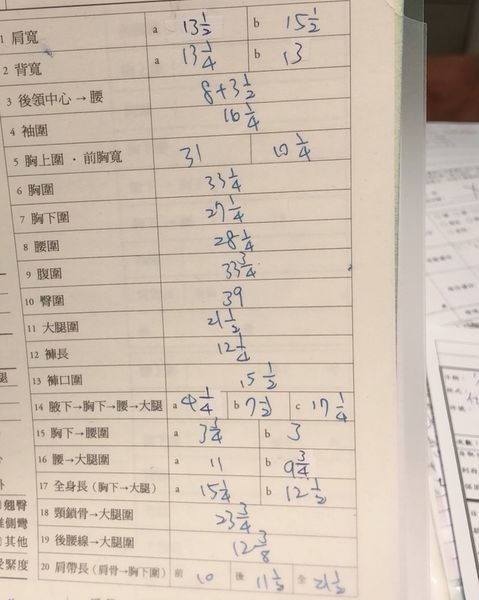 1 肩寬 a 13 1/2 b 15 1/2
2 背寬 a 13 1/4 b 13
3 後領中心→腰 8+3 1/2
4 袖圍 10 1/4
5 胸上圍·前胸寬 31 10 1/4
6 胸圍 33 1/4
7 胸下圍 27 1/4
8 腰圍 28 1/4
9 腹圍 33 3/4
10 臀圍 39
11 大腿圍 21 1/2
12 褲長 12 1/4
13 褲口圍 15 1/2
14 腋下→胸下→腰→大腿 a 4 1/4 b 7 1/2 c 17 1/4
15 胸下→腰圍 a 3 1/4 b 3
16 腰→大腿圍 a 11 b 9 3/4
17 全身長(胸下→大腿) a 15 1/4 b 12 1/2
18 頸鎖骨→大腿圍 23 3/4
19 後腰線→大腿圍 12 3/8
20 肩帶長(肩骨→胸下圍) 前 10 後 11 1/2 全 21 1/2
翹臀
側彎
其他
緊度